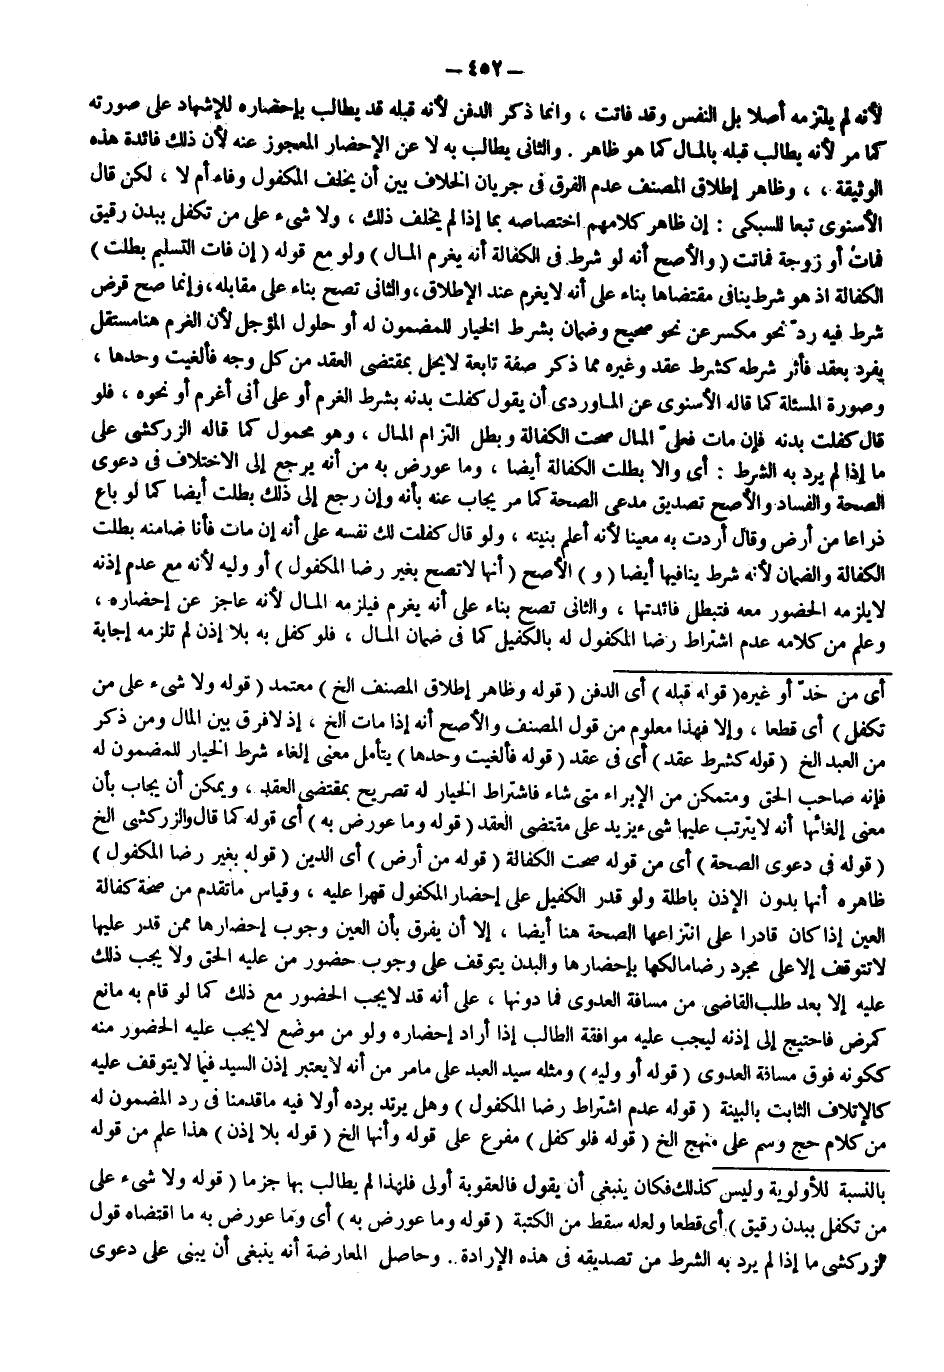 – ٤٥٢ –
لأنه لم يلتزمه أصلا بل النفس وقد فاتت ، وانما ذكر الدفن لأنه قبله قد يطالب بإحضاره للإشهاد على صورته
كما مر لأنه يطالب قبله بالمال كما هو ظاهر . والثانى يطالب به لا عن الإحضار المعجوز عنه لأن ذلك فائدة هذه
الوثيقة ، ، وظاهر إطلاق المصنف عدم الفرق فى جريان الخلاف بين أن يخلف المكفول وفاء أم لا ، لكن قال
الأسنوى تبعا للسبكى : إن ظاهر كلامهم اختصاصه بما إذا لم يخلف ذلك ، ولا شىء على من تكفل ببدن رقيق
فمات أو زوجة فماتت ( والأصح أنه لو شرط فى الكفالة أنه يغرم المال ) ولو مع قوله ( إن فات التسليم بطلت )
الكفالة اذ هو شرط ينافى مقتضاها بناء على أنه لايغرم عند الإطلاق، والثانى تصح بناء على مقابله، وإنما صح قرض
شرط فيه ردّ نحو مكسر عن نحو صحيح وضمان بشرط الخيار للمضمون له أو حلول المؤجل لأن الغرم هنا مستقل
يفرد بعقد فأثر شرطه كشرط عقد وغيره مما ذكر صفة تابعة لايحل بمقتضى العقد من كل وجه فألغيت وحدها ،
وصورة المسئلة كما قاله الأسنوى عن الماوردى أن يقول كفلت بدنه بشرط الغرم أو على أنى أغرم أو نحوه ، فلو
قال كفلت بدنه فإن مات فعلىّ المال صحت الكفالة وبطل التزام المال ، وهو محمول كما قاله الزركشى على
ما إذا لم يرد به الشرط : أى والا بطلت الكفالة أيضا ، وما عورض به من أنه يرجع إلى الاختلاف فى دعوى
الصحة والفساد والأصح تصديق مدعى الصحة كما مر يجاب عنه بأنه وإن رجع إلى ذلك بطلت أيضا كما لو باع
ذراعا من أرض وقال أردت به معينا لأنه أعلم بنيته ، ولو قال كفلت لك نفسه على أنه إن مات فأنا ضامنه بطلت
الكفالة والضمان لأنه شرط ينافيها أيضا ( و ) الأصح ( أنها لاتصح بغير رضا المكفول ) أو وليه لأنه مع عدم إذنه
لايلزمه الحضور معه فتبطل فائدتها ، والثانى تصح بناء على أنه يغرم فيلزمه المال لأنه عاجز عن إحضاره ،
وعلم من كلامه عدم اشتراط رضا المكفول له بالكفيل كما فى ضمان المال ، فلو كفل به بلا إذن لم تلزمه إجابة
أى من خدّ أو غيره( قوله قبله ) أى الدفن ( قوله وظاهر إطلاق المصنف الخ ) معتمد ( قوله ولا شىء على من
تكفل ) أى قطعا ، وإلا فهذا معلوم من قول المصنف والأصح أنه إذا مات الخ ، إذ لافرق بين المال ومن ذكر
من العبد الخ ( قوله كشرط عقد ) أى فى عقد ( قوله فألغيت وحدها ) يتأمل معنى إلغاء شرط الخيار للمضمون له
فإنه صاحب الحق ومتمكن من الإبراء متى شاء فاشتراط الخيار له تصريح بمقتضى العقد ، ويمكن أن يجاب بأن
معنى إلغائها أنه لايترتب عليها شىء يزيد على مقتضى العقد ( قوله وما عورض به ) أى قوله كما قال والزركشى الخ
( قوله فى دعوى الصحة ) أى من قوله صحت الكفالة ( قوله من أرض ) أى الدين ( قوله بغير رضا المكفول )
ظاهره أنها بدون الإذن باطلة ولو قدر الكفيل على إحضار المكفول قهرا عليه ، وقياس ماتقدم من صحة كفالة
العين إذا كان قادرا على انتزاعها الصحة هنا أيضا ، إلا أن يفرق بأن العين وجوب إحضارها ممن قدر عليها
لاتتوقف إلا على مجرد رضا مالكها بإحضارها والبدن يتوقف على وجوب حضور من عليه الحق ولا يجب ذلك
عليه إلا بعد طلب القاضى من مسافة العدوى فما دونها ، على أنه قد لايجب الحضور مع ذلك كما لو قام به مانع
كمرض فاحتيج إلى إذنه ليجب عليه موافقة الطالب إذا أراد إحضاره ولو من موضع لايجب عليه الحضور منه
ككونه فوق مسافة العدوى ( قوله أو وليه ) ومثله سيد العبد على مامر من أنه لايعتبر إذن السيد فيما لايتوقف عليه
كالإتلاف الثابت بالبينة ( قوله عدم اشتراط رضا المكفول ) وهل يرتد برده أولا فيه ماقدمنا فى رد المضمون له
من كلام حج وسم على منهج الخ ( قوله فلو كفل ) مفرع على قوله وأنها الخ ( قوله بلا إذن ) هذا علم من قوله
بالنسبة للأولوية وليس كذلك فكان ينبغى أن يقول فالعقوبة أولى فلهذا لم يطالب بها جزما ( قوله ولا شىء على
من تكفل ببدن رقيق ) أى قطعا ولعله سقط من الكتبة ( قوله وما عورض به ) أى وما عورض به ما اقتضاه قول
الزركشى ما إذا لم يرد به الشرط من تصديقه فى هذه الإرادة .. وحاصل المعارضة أنه ينبغى أن يبنى على دعوى